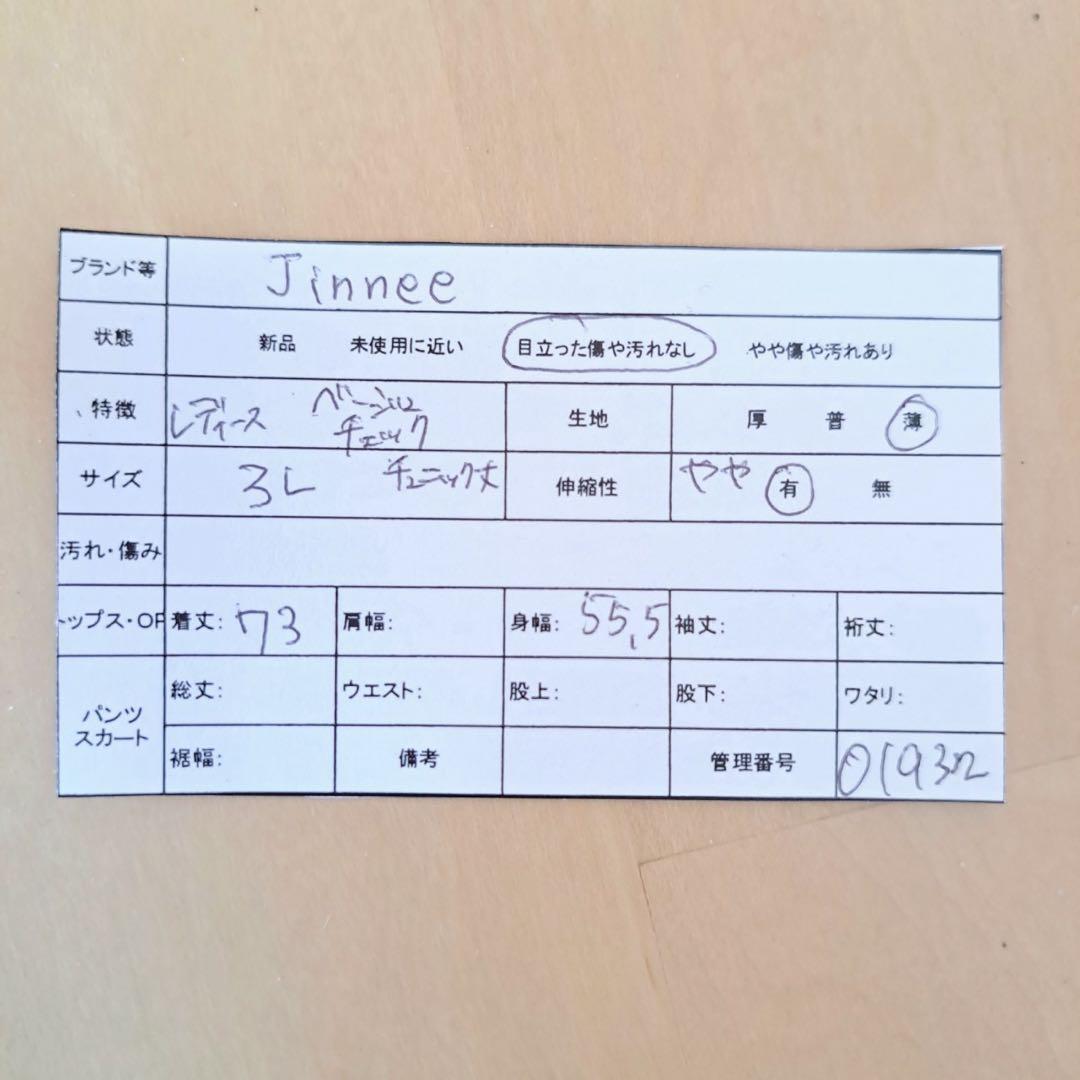 ブランド等 Jinnee
状態 新品 未使用に近い 目立った傷や汚れなし やや傷や汚れあり
特徴 レディース ベージュ チェック 生地 厚 普 薄
サイズ 3L チュニック丈 伸縮性 やや 有 無
汚れ・傷み
トップス・OP 着丈: 73 肩幅: 身幅: 55,5 袖丈: 裄丈:
パンツ スカート 総丈: ウエスト: 股上: 股下: ワタリ:
裾幅: 備考 管理番号